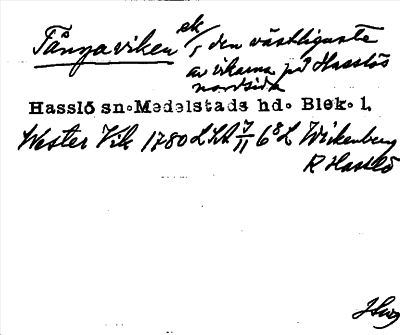 Tångaviken ek, den västligaste
av vikarna på Hasslös
nordsida
Hasslö sn. Medelstads hd. Blek. l.
Wester Vik 1780 LSA 6⁸ L Wickenberg
R Hasslö